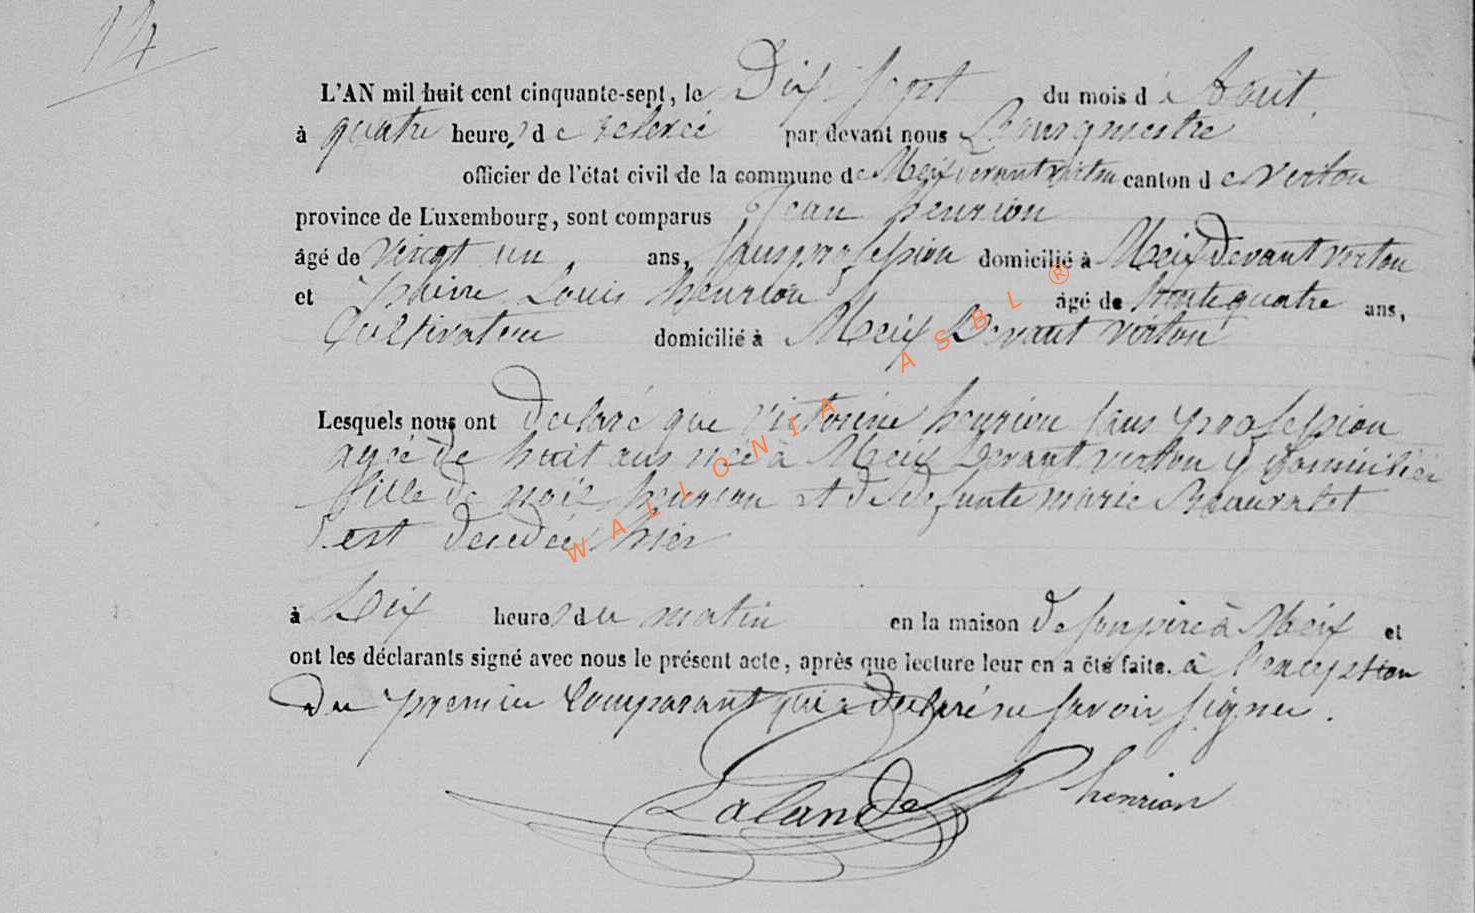 14
L'AN mil huit cent cinquante-sept, le Dix sept du mois d'Aout
à quatre heures de relevée par devant nous Bourgmestre
officier de l'état civil de la commune de Meix devant virton canton de virton
province de Luxembourg, sont comparus Jean henrion
âgé de vingt un ans, sans profession domicilié à Meix devant virton
et pierre Louis henrion âgé de trente quatre ans,
Cultivateur domicilié à Meix Devant virton
Lesquels nous ont déclaré que Victorine henrion sans profession
agée de huit ans née à Meix Devant virton y domiciliée
fille de noël henrion et de defunte marie
est decedée hier
à Dix heures du matin en la maison de son père à Meix et
ont les déclarants signé avec nous le présent acte, après que lecture leur en a été faite. à l'exception
du premier Comparant qui a declaré ne savoir signer.
Lalande P henrion
WALLONIA ASBL ®